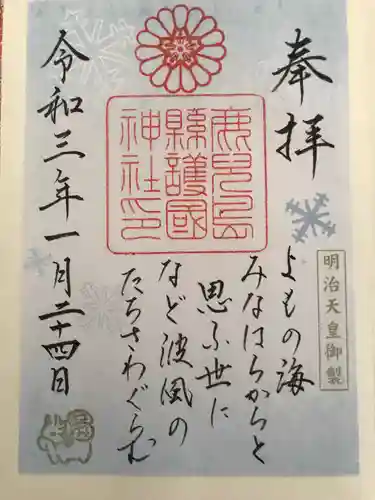 奉拝
明治天皇御製
よもの海
みなはらからと
思ふ世に
など波風の
たちさわぐらむ
鹿児島
縣護國
神社印
令和三年一月二十四日